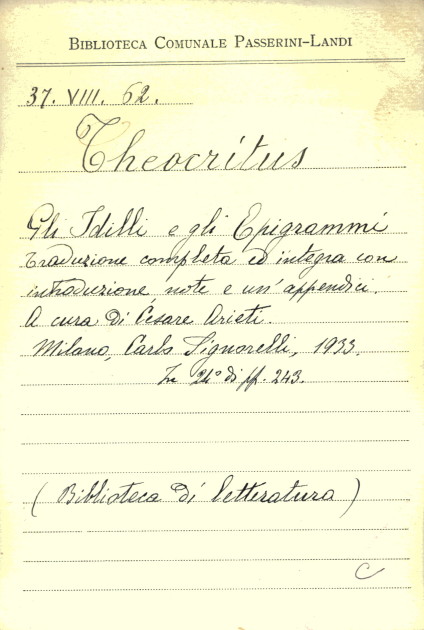 BIBLIOTECA COMUNALE PASSERINI-LANDI
37. VIII. 62.
Theocritus
Gli Idilli e gli Epigrammi
Traduzione completa ed integra con
introduzione, note e un' appendici.
A cura di Cesare Arieti.
Milano, Carlo Signorelli, 1933.
In 24° di pp. 243.
(Biblioteca di letteratura)
C